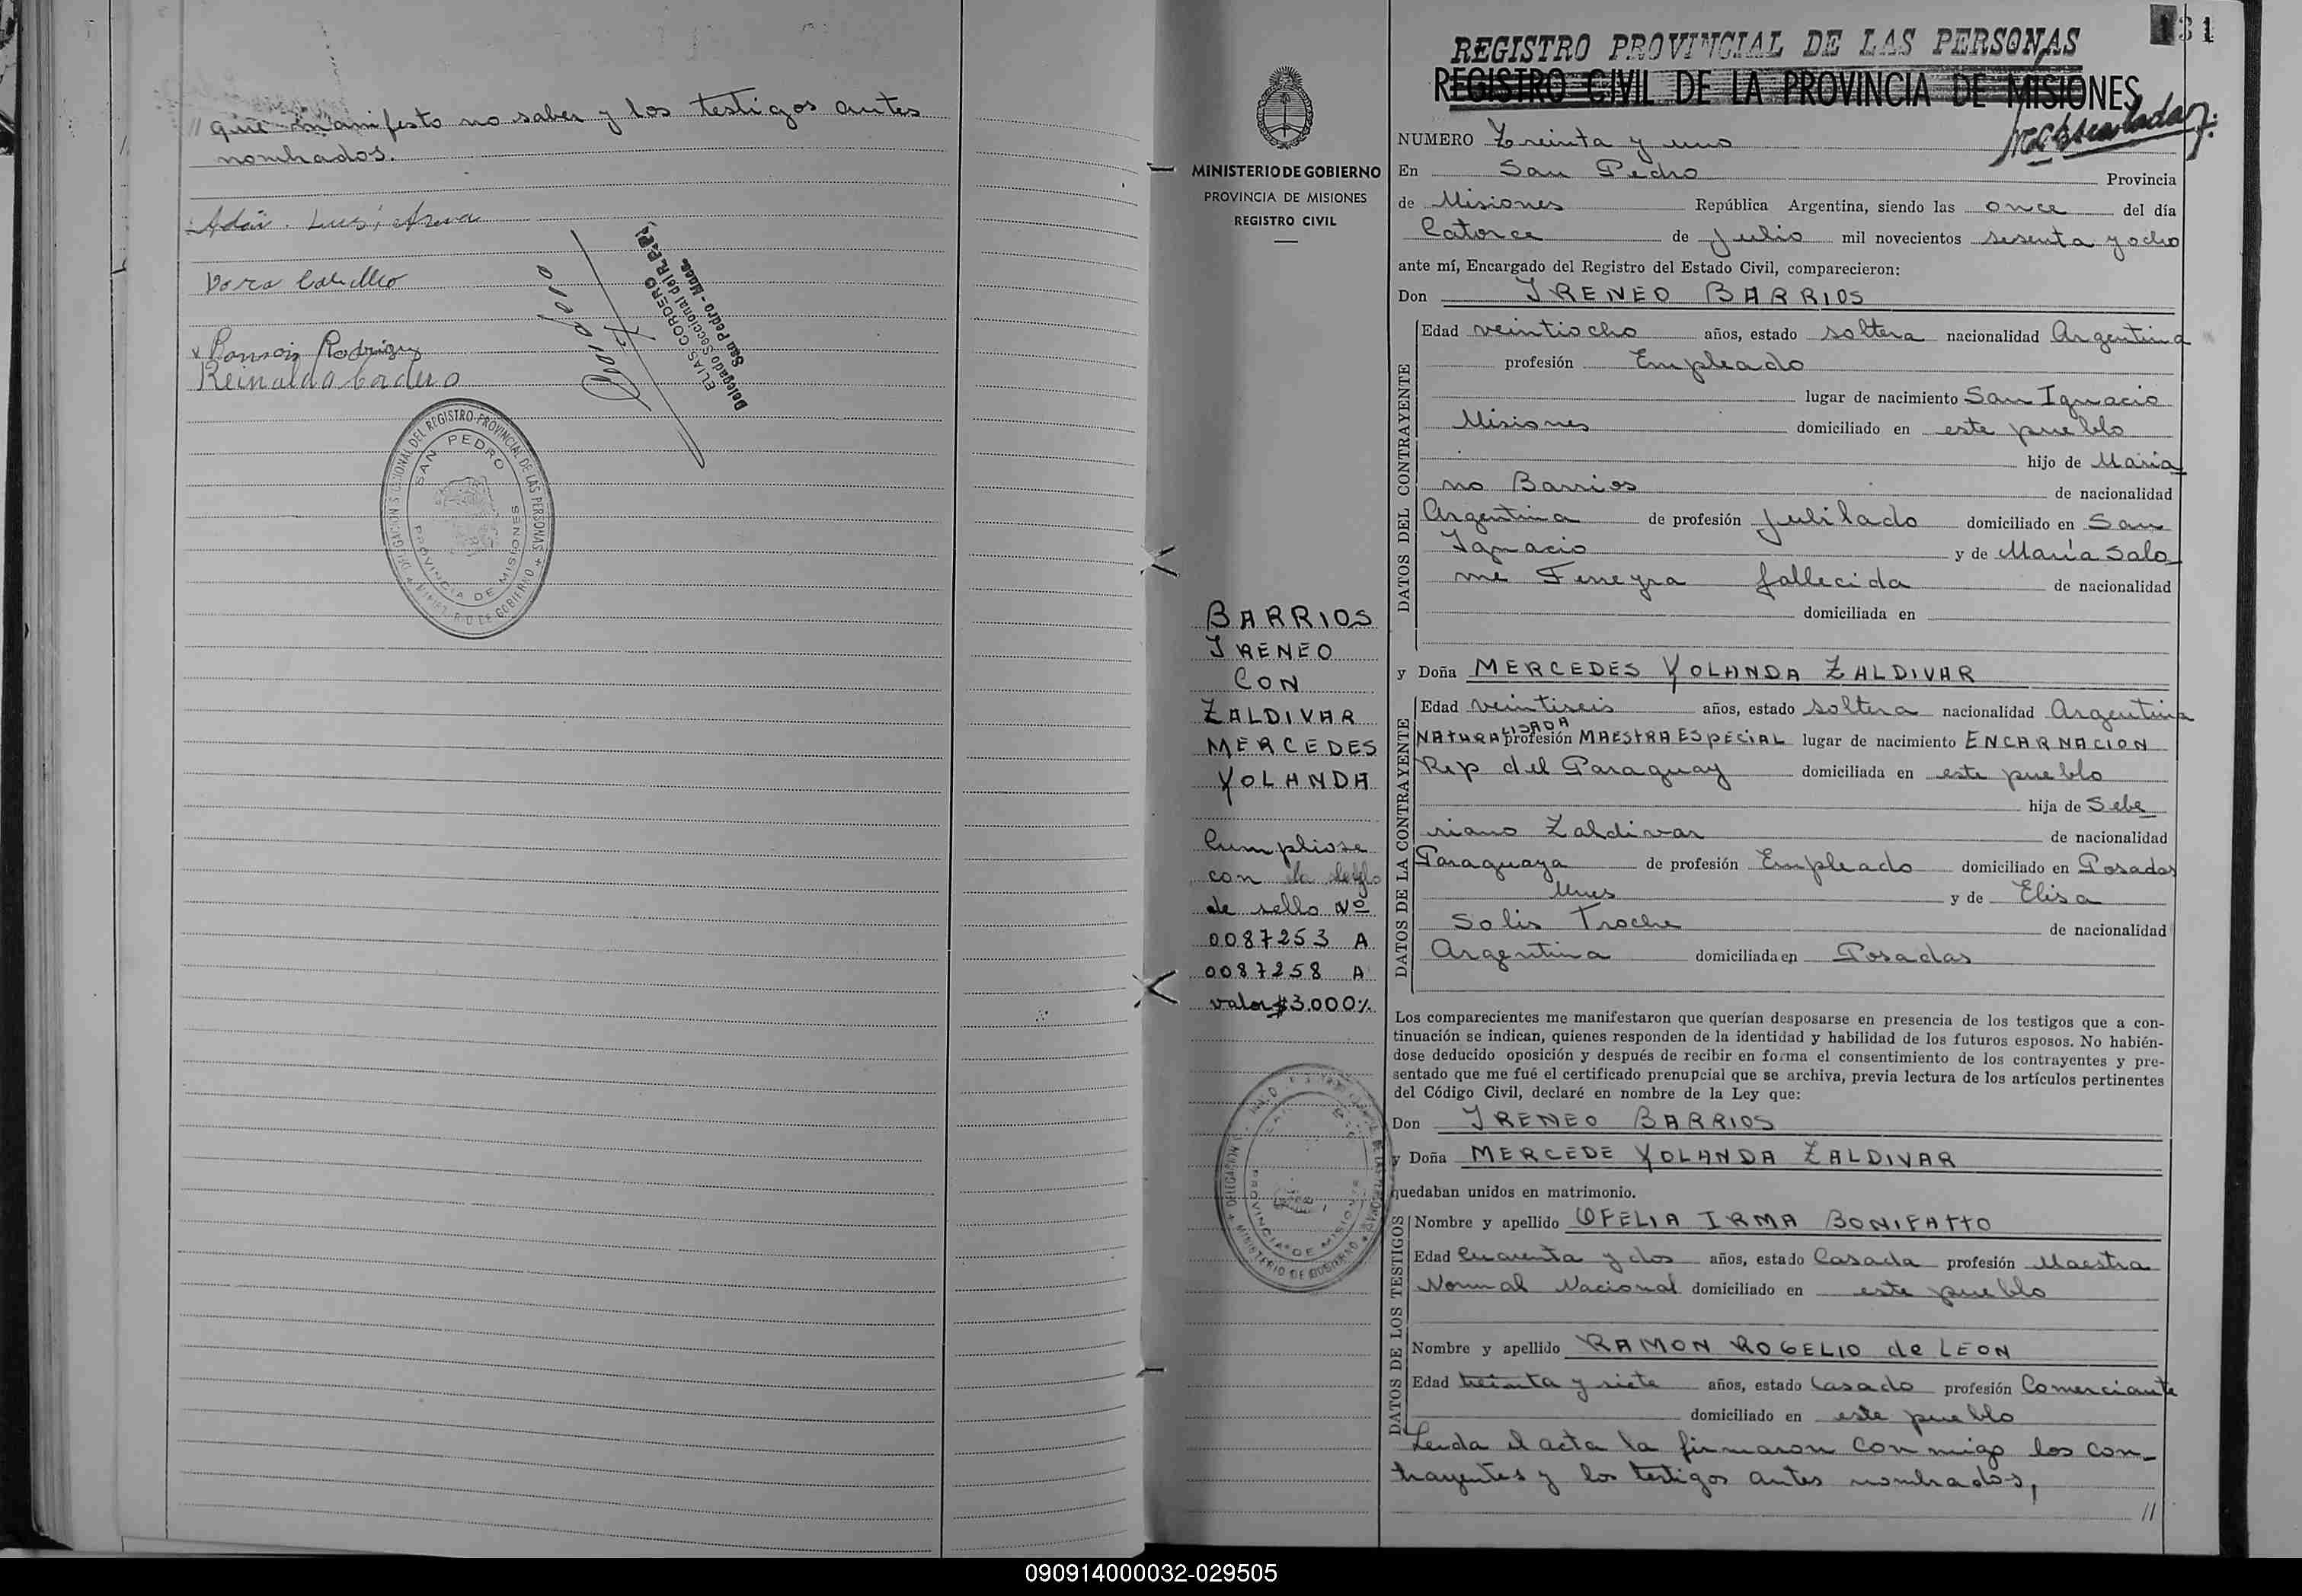 que manifesto no saber y los testigos antes
nombrados.
Reinaldo Cordero
ELIAS CORDERO
Delegado Seccional del R.P.P.
San Pedro - Mnes.
DELEGACION SECCIONAL DEL REGISTRO PROVINCIAL DE LAS PERSONAS
SAN PEDRO
PROVINCIA DE MISIONES
MINISTERIO DE GOBIERNO
MINISTERIO DE GOBIERNO
PROVINCIA DE MISIONES
REGISTRO CIVIL
BARRIOS
IRENEO
CON
ZALDIVAR
MERCEDES
YOLANDA
Cumpliose
con
de sello Nº
0087253 A
0087258 A
valor $3.000%
PROVINCIA DE MISIONES
MINISTERIO DE GOBIERNO
131
REGISTRO PROVINCIAL DE LAS PERSONAS
REGISTRO CIVIL DE LA PROVINCIA DE MISIONES
NUMERO Treinta y uno
En San Pedro Provincia
de Misiones República Argentina, siendo las once del día
Catorce de Julio mil novecientos sesenta y ocho
ante mí, Encargado del Registro del Estado Civil, comparecieron:
Don IRENEO BARRIOS
DATOS DEL CONTRAYENTE
Edad veintiocho años, estado soltera nacionalidad Argentina
profesión Empleado
lugar de nacimiento San Ignacio
Misiones domiciliado en este pueblo
hijo de Maria
no Barrios de nacionalidad
Argentina de profesión Jubilado domiciliado en San
Ignacio y de María Salo
me Ferreyra fallecida de nacionalidad
domiciliada en
y Doña MERCEDES YOLANDA ZALDIVAR
DATOS DE LA CONTRAYENTE
Edad veintiseis años, estado soltera nacionalidad Argentina
NATURALISADA profesión MAESTRA ESPECIAL lugar de nacimiento ENCARNACION
Rep del Paraguay domiciliada en este pueblo
hija de Sebe
riano Zaldivar de nacionalidad
Paraguaya de profesión Empleado domiciliado en Posadas
Mnes y de Elisa
Solis Troche de nacionalidad
Argentina domiciliada en Posadas
Los comparecientes me manifestaron que querían desposarse en presencia de los testigos que a con-
tinuación se indican, quienes responden de la identidad y habilidad de los futuros esposos. No habién-
dose deducido oposición y después de recibir en forma el consentimiento de los contrayentes y pre-
sentado que me fué el certificado prenupcial que se archiva, previa lectura de los artículos pertinentes
del Código Civil, declaré en nombre de la Ley que:
Don IRENEO BARRIOS
y Doña MERCEDE YOLANDA ZALDIVAR
quedaban unidos en matrimonio.
DATOS DE LOS TESTIGOS
Nombre y apellido OFELIA IRMA BONIFATTO
Edad Cuarenta y dos años, estado Casada profesión Maestra
Normal Nacional domiciliado en este pueblo
Nombre y apellido RAMON ROGELIO de LEON
Edad treinta y siete años, estado Casado profesión Comerciante
domiciliado en este pueblo
Leida el acta la firmaron conmigo los con_
trayentes y los testigos antes nombrados,
//
090914000032-029505